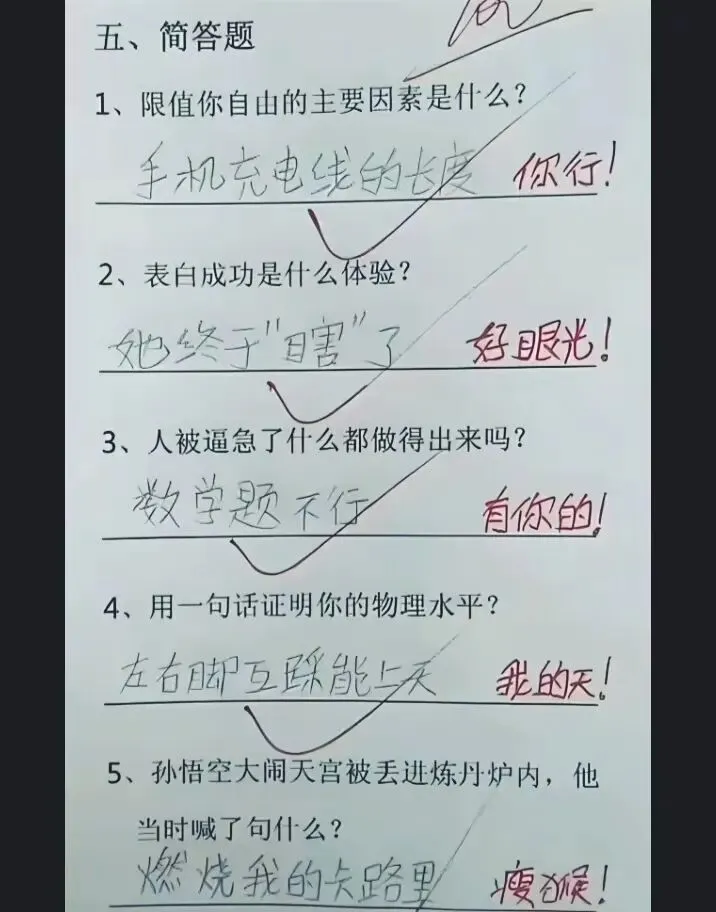 五、简答题
1、限值你自由的主要因素是什么？
手机充电线的长度 你行！
2、表白成功是什么体验？
她终于“瞎”了 好眼光！
3、人被逼急了什么都做得出来吗？
数学题不行 有你的！
4、用一句话证明你的物理水平？
左右脚互踩能上天 我的天！
5、孙悟空大闹天宫被丢进炼丹炉内，他
当时喊了句什么？
燃烧我的卡路里 瘦猴！